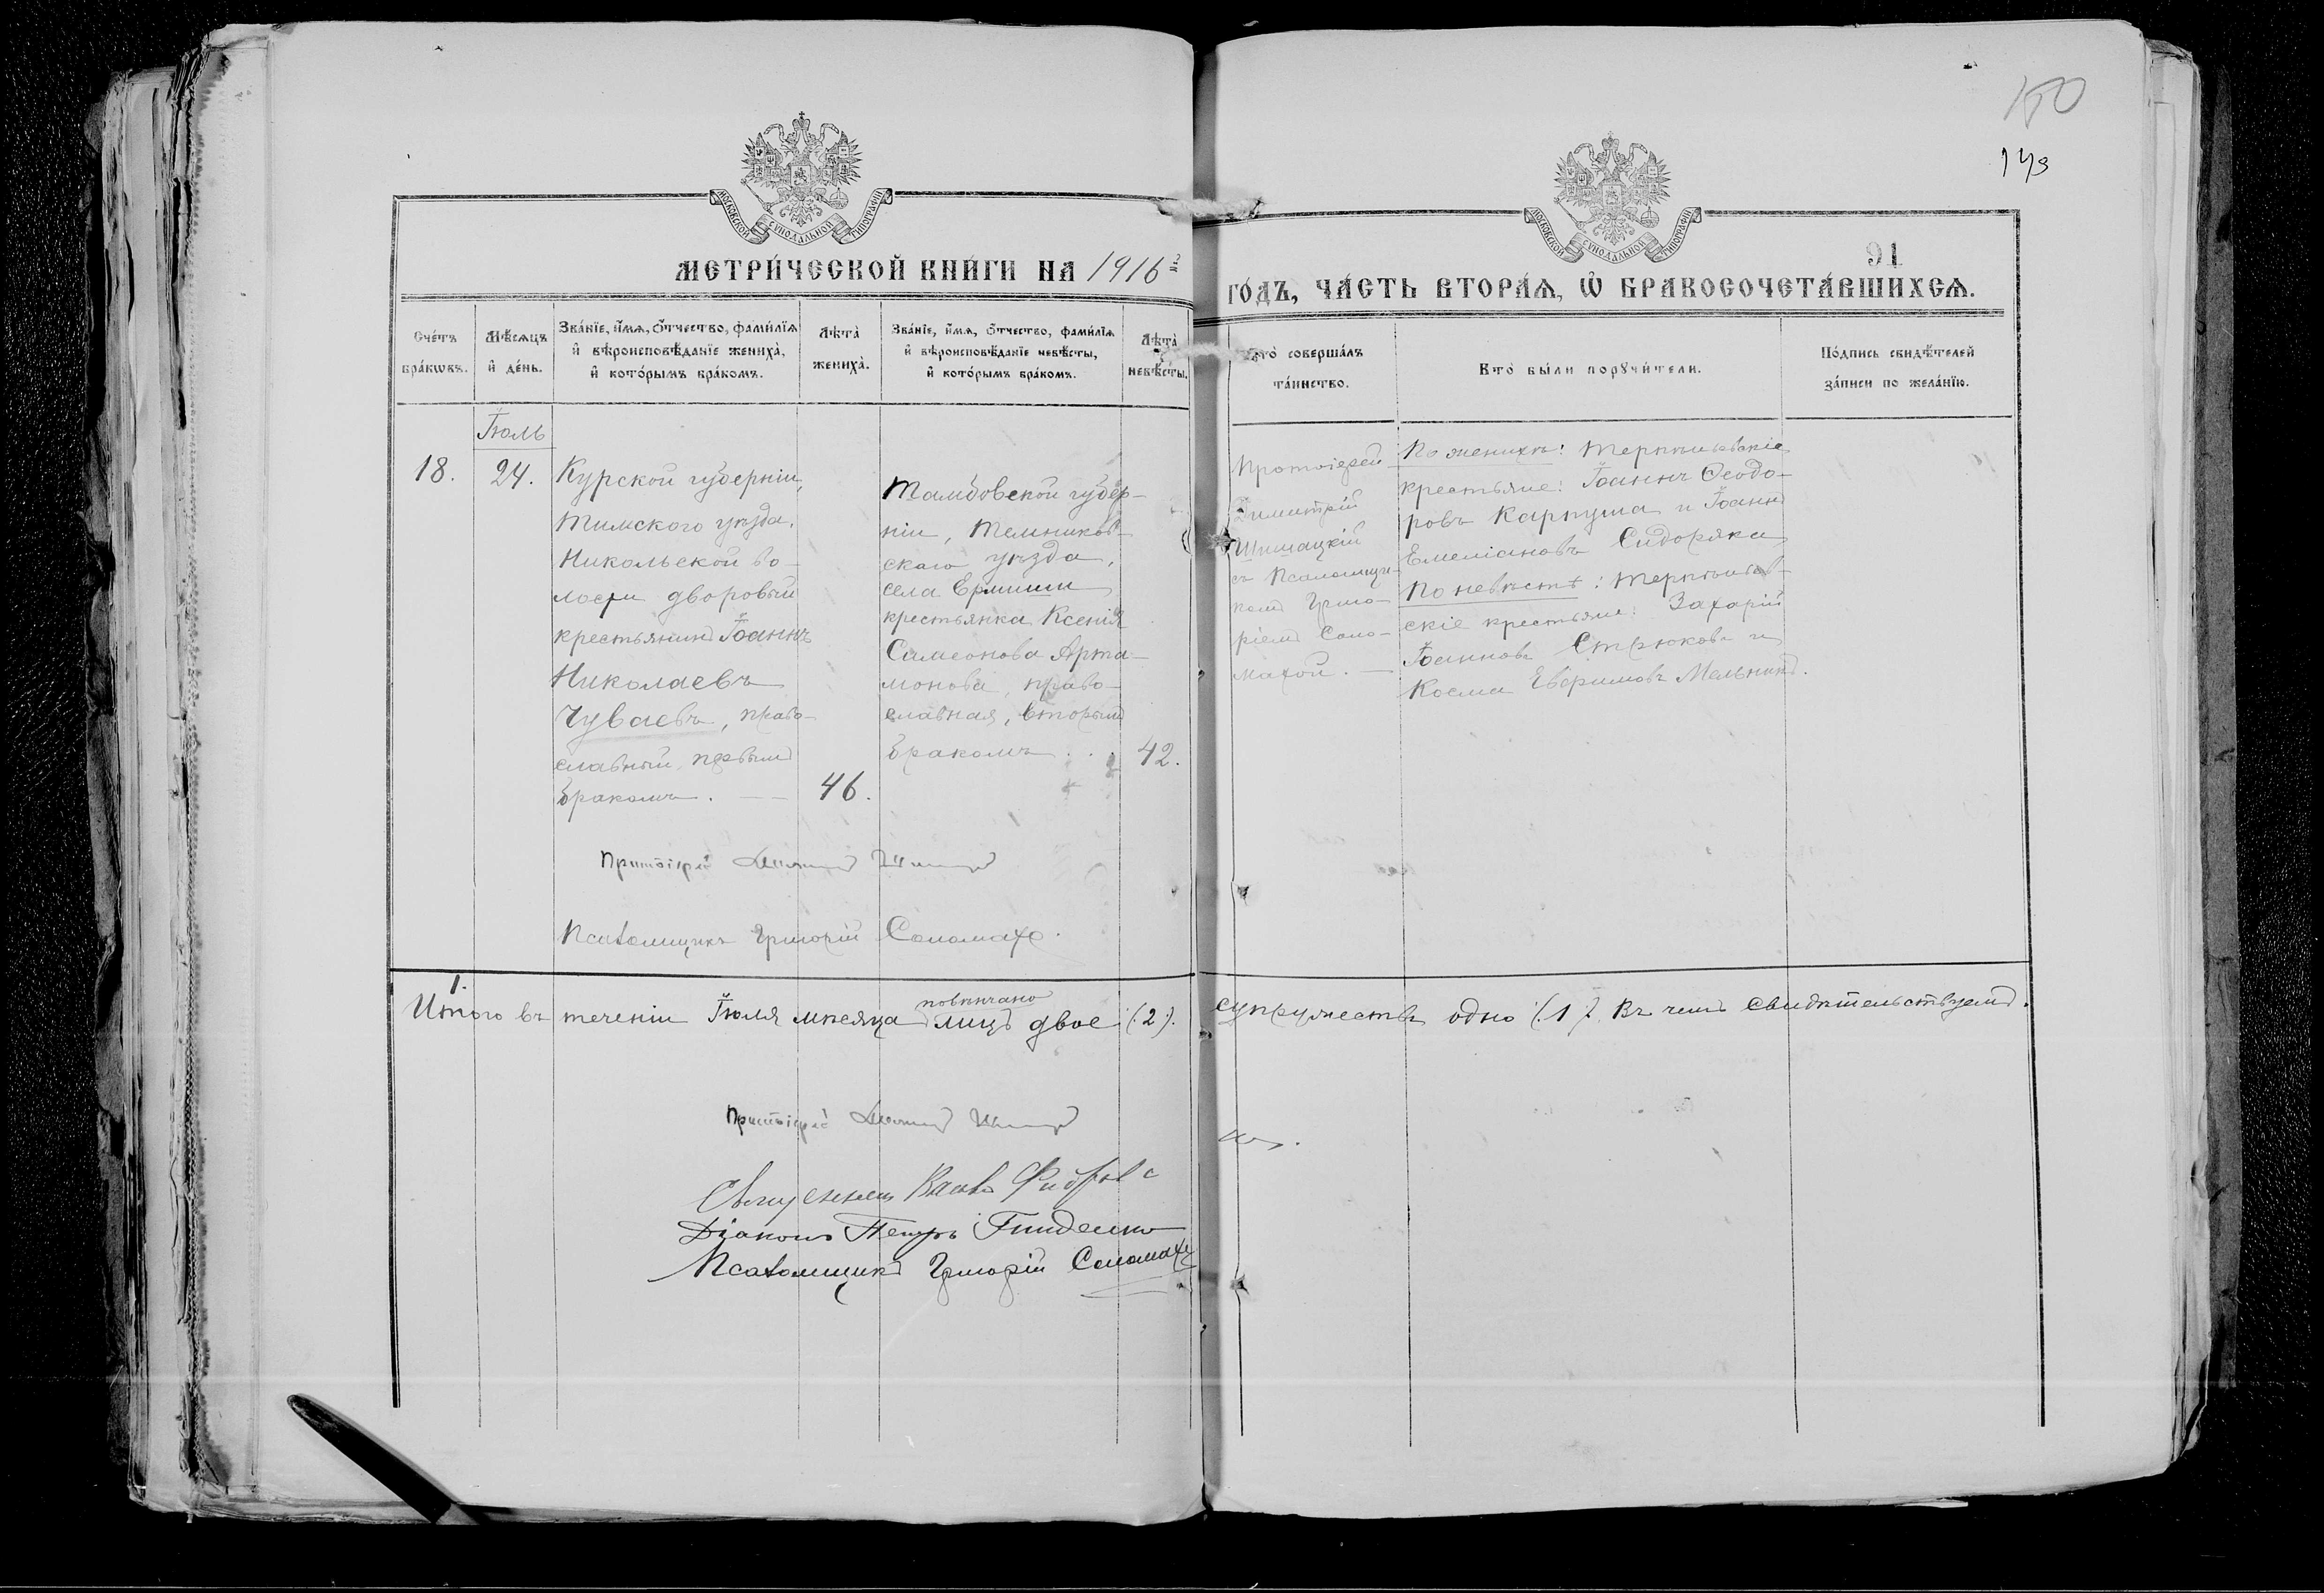 150
143
МОСКОВСКОЙ СѴНОДАЛЬНОЙ ТИПОГРАФІИ
МОСКОВСКОЙ СѴНОДАЛЬНОЙ ТИПОГРАФІИ
91
МЕТРИ́ЧЕСКОЙ КНИ́ГИ НА 1916й
ГО́ДЪ, ЧА́СТЬ ВТОРА́Ѧ, Ѡ҆ БРАКОСОЧЕТА́ВШИХСѦ.
Сче́тъ
бра́кѡвъ.
Мѣ́сѧцъ
и҆ де́нь.
Зва́нїе, и҆́мѧ, ѻ҆́тчество, фами́лїѧ
и҆ вѣроисповѣ́данїе жениха̀,
и҆ кото́рымъ бра́комъ.
Лѣ́та̀
жениха̀.
Зва́нїе, и҆́мѧ, ѻ҆́тчество, фами́лїѧ
и҆ вѣроисповѣ́данїе невѣ́сты,
и҆ кото́рымъ бра́комъ.
Лѣ́та̀
невѣ́сты.
Кто̀ соверша́лъ
та́инство.
Кто̀ бы́ли порꙋчи́тели.
По́дпись свидѣ́телей
за́писи по жела́нїю.
Іюль
18.
24.
Курской губерніи,
Тимского уѣзда,
Никольской во-
лости дворовый
крестьянинъ Іоаннъ
Николаевъ
Чуваевъ, право-
славный, первымъ
бракомъ. —
46.
Тамбовской губер-
ніи, Темников-
скаго уѣзда,
села Ермиши
крестьянка Ксенія
Симеонова Арта-
монова, право-
славная, вторымъ
бракомъ.
42.
Протоіерей
Димитрій
Шишацкій
съ Псаломщи-
комъ Григо-
ріемъ Соло-
махой. —
По женихѣ: Терпѣніевскіе
крестьяне: Іоаннъ Ѳеодо-
ровъ Карпуша и Іоаннъ
Емеліановъ Сидоряка
По невѣстѣ: Терпѣніев-
скіе крестьяне: Захарій
Іоанновъ Стрюковъ и
Косма Евфимовъ Мельникъ.
Протоіерей Димитрій
Псаломщикъ Григорій Соломаха.
1.
повѣнчано
Итого въ теченіи Іюля мѣсяца лицъ двое (:2:).
супружествъ одно (:1:). Въ чемъ свидѣтельствуемъ.
Протоіерей Димитрій
Священникъ
Діаконъ Петръ
Псаломщикъ Григорій Соломаха